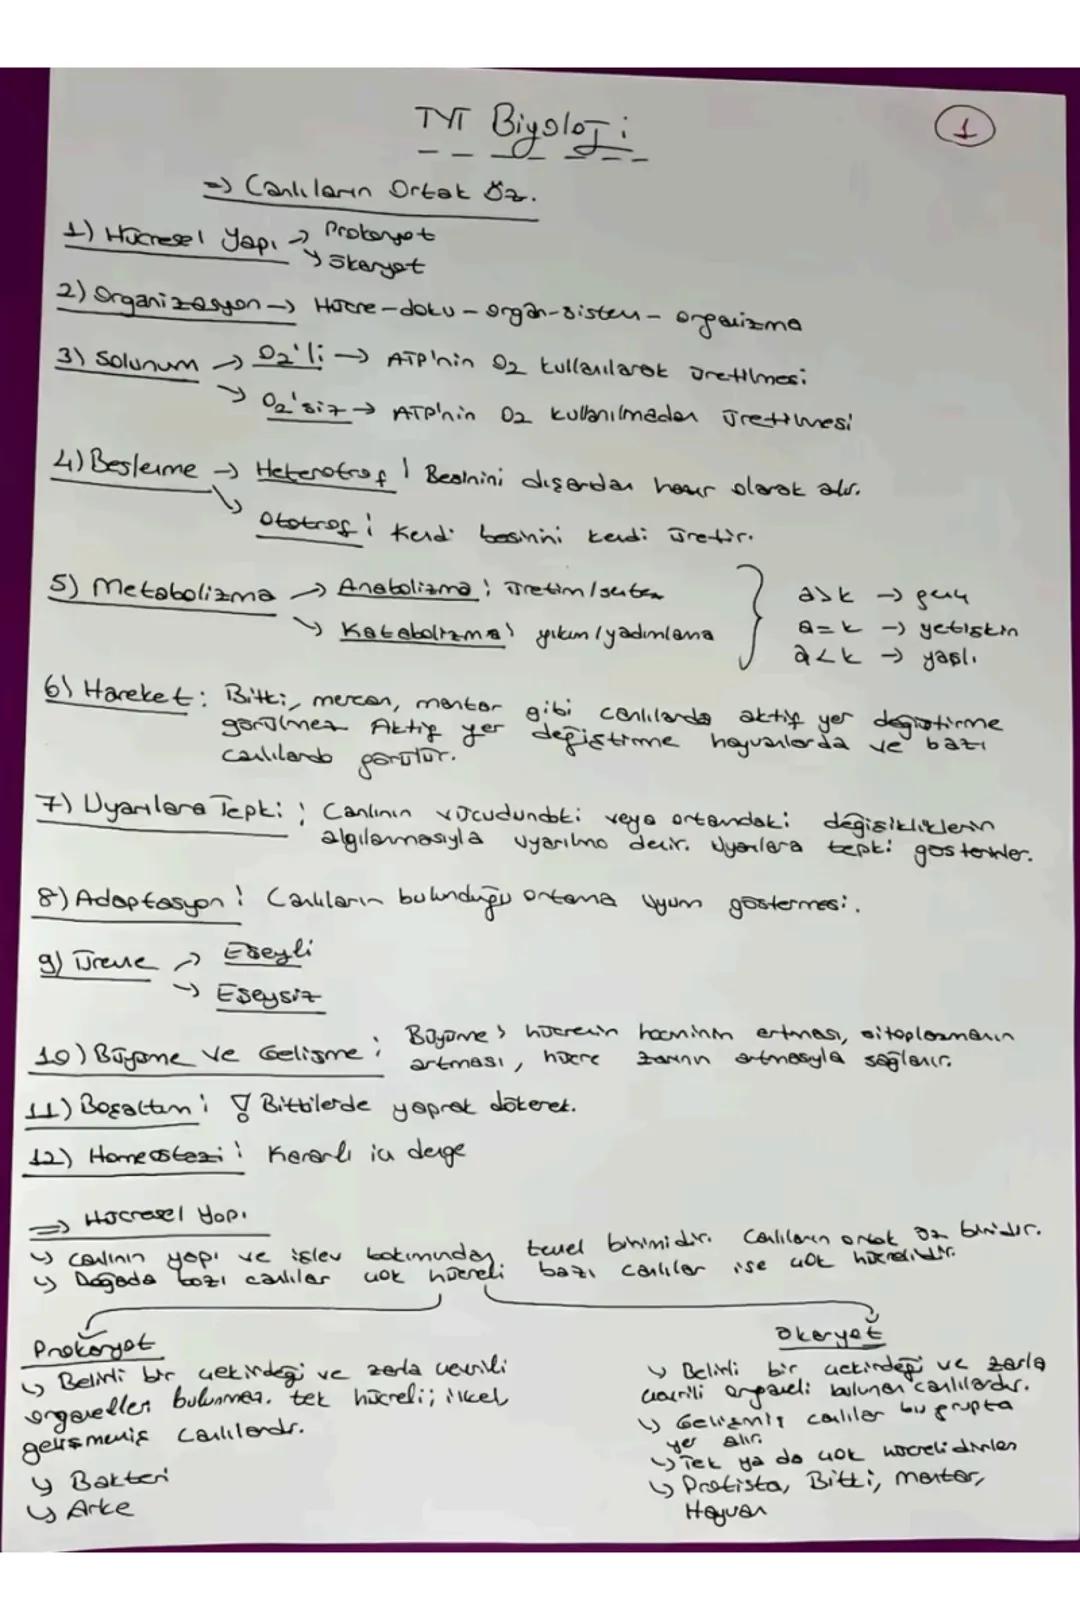 TYT Biyoloji:
1
=> Canlıların Ortak Öz.
1) Hücresel Yapı → Prokaryot
↘ Ökaryot
2) Organizasyon → Hücre-doku-organ-sistem-organizma
3) Solunum → O2'li → ATP'nin O2 kullanılarak üretilmesi
→ O2'siz → ATP'nin O2 kullanılmadan üretilmesi
4) Beslenme → Heterotrof: Besinini dışardan hazır olarak alır.
↘ Ototrof: Kendi besinini kendi üretir.
5) Metabolizma → Anabolizma: üretim/sentez
↘ Katabolizma: yıkım/yadımlama
a>k → genç
a=k → yetişkin
a<k → yaşlı
6) Hareket: Bitki, mercan, mantar gibi canlılarda aktif yer değiştirme
görülmez Aktif yer değiştirme hayvanlarda ve bazı
canlılarda görülür.
7) Uyarılara Tepki: Canlının vücudundaki veya ortamdaki değişikliklerin
algılanmasıyla uyarılma denir. Uyarılara tepki gösterirler.
8) Adaptasyon: Canlıların bulunduğu ortama uyum göstermesi.
9) Üreme → Eşeyli
→ Eşeysiz
10) Büyüme ve Gelişme: Büyüme; hücrenin hacminin artması, sitoplazmanın
artması, hücre zarının artmasıyla sağlanır.
11) Boşaltım: ! Bitkilerde yaprak dökerek.
12) Homeostazi: Kararlı iç denge
=> Hücresel Yapı
↳ Canlının yapı ve işlev bakımından temel birimidir. Canlıların ortak öz biridir.
↳ Doğada bazı canlılar çok hücreli bazı canlılar ise çok hücrelidir.
Prokaryot
↳ Belirli bir çekirdeği ve zarla çevrili
organelleri bulunmaz. tek hücreli; ilkel,
gelişmemiş canlılardır.
↳ Bakteri
↳ Arke
Ökaryot
↳ Belirli bir çekirdeği ve zarla
çevrili organeli bulunan canlılardır.
↳ Gelişmiş canlılar bu grupta
yer alır.
↳ Tek ya da çok hücrelidirler
↳ Protista, Bitki, mantar,
Hayvan